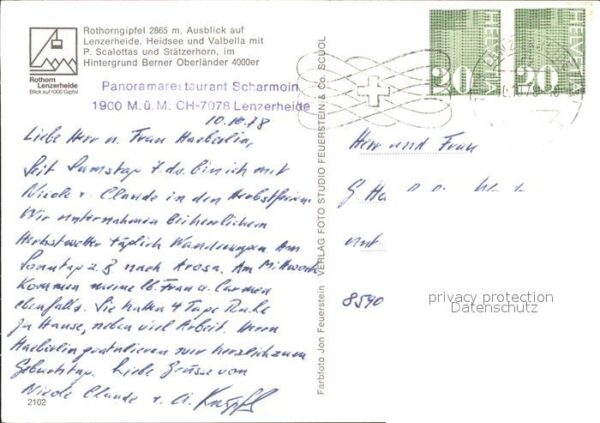 Rothorngipfel 2865 m. Ausblick auf
Lenzerheide, Heidsee und Valbella mit
P. Scalottas und Stätzerhorn, im
Hintergrund Berner Oberländer 4000er
Rothorn
Lenzerheide
Blick auf 1000 Gipfel
Panoramarestaurant Scharmoin
1900 M.ü.M. CH-7078 Lenzerheide
10.10.78
Liebe Herr u. Frau Haeberlin,
Seit Samstag 7.ds. bin ich mit
Nicole u. Claude in den Herbstferien
Wir unternahmen bei herrlichem
Herbstwetter täglich Wanderungen Am
Sonntag z.B nach Arosa. Am Mittwoch
kommen meine lb. Frau u. Carmen
ebenfalls. Sie hatten 4 Tage Ruhe
zu Hause, neben viel Arbeit. Herrn
Haeberlin gratulieren wir herzlich zum
Geburtstag. Liebe Grüsse von
Nicole Claude u.
2102
Farbfoto Jon Feuerstein VERLAG FOTO STUDIO FEUERSTEIN & Co. SCUOL
HELVETIA
20
HELVETIA
20
Herr und Frau
8590
privacy protection
Datenschutz